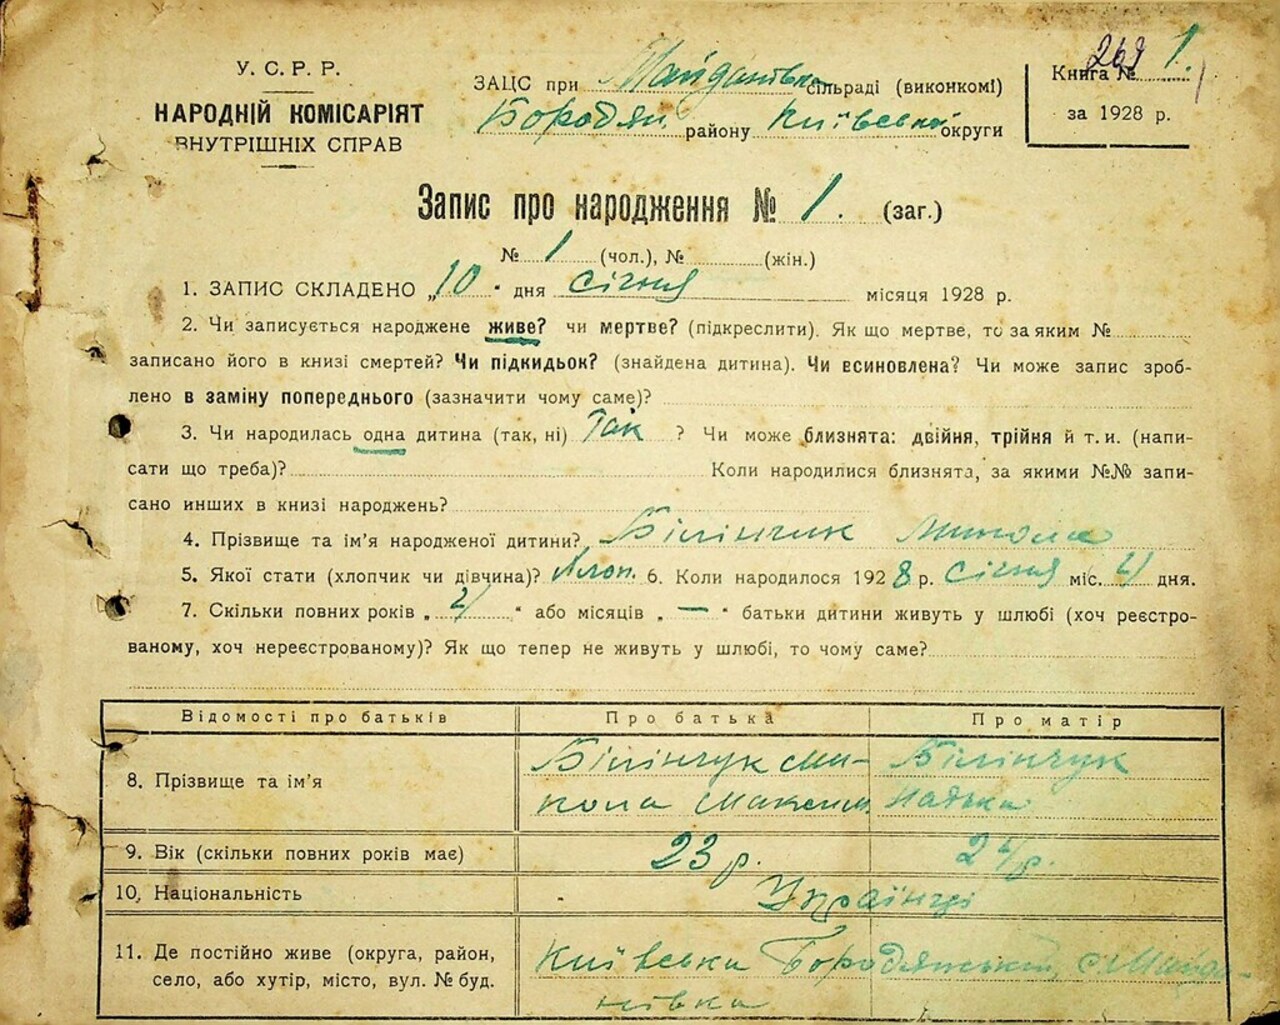 У. С. Р. Р.
НАРОДНІЙ КОМІСАРІЯТ
ВНУТРІШНІХ СПРАВ
ЗАЦС при Майданівка сільраді (виконкомі)
Бородян. району Київської округи
Книга № 1.
269
за 1928 р.
Запис про народження № 1. (заг.)
№ 1 (чол.), № (жін.)
1. ЗАПИС СКЛАДЕНО „10" дня Січня місяця 1928 р.
2. Чи записується народжене живе? чи мертве? (підкреслити). Як що мертве, то за яким №
записано його в книзі смертей? Чи підкидьок? (знайдена дитина). Чи всиновлена? Чи може запис зроб-
лено в заміну попереднього (зазначити чому саме)?
3. Чи народилась одна дитина (так, ні) Так ? Чи може близнята: двійня, трійня й т. и. (напи-
сати що треба)? Коли народилися близнята, за якими №№ запи-
сано инших в книзі народжень?
4. Прізвище та ім'я народженої дитини? Білінчук Микола
5. Якої стати (хлопчик чи дівчина)? Хлоп. 6. Коли народилося 1928 р. Січня міс. дня.
7. Скільки повних років „2" або місяців „—" батьки дитини живуть у шлюбі (хоч реєстро-
ваному, хоч нереєстрованому)? Як що тепер не живуть у шлюбі, то чому саме?
Відомості про батьків Про батька Про матір
8. Прізвище та ім'я Білінчук Ми-кола Максим. Білінчук Надька
9. Вік (скільки повних років має) 23 р.
10. Національність Українці
11. Де постійно живе (округа, район, Київська Бородянський, с. Майда-
село, або хутір, місто, вул. № буд. нівка